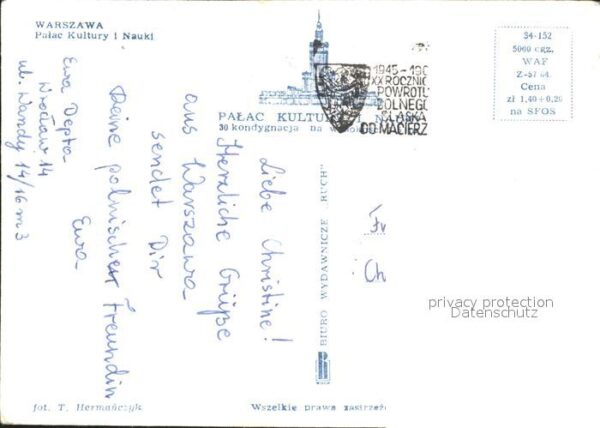 WARSZAWA
Pałac Kultury i Nauki
PAŁAC KULTU
30 kondygnacja na
1945-19
XX ROCZNIC
POWROTU
DOLNEGO
ŚLĄSKA
DO MACIERZ
34-152
5000 egz.
WAF
Z-57 64
Cena
zł 1,40+0,20
na SFOS
Liebe Christine!
Herzliche Grüße
aus Warszawa
sendet Dir
Deine polnischen Freundin
Ewa
Ewa Depta
Wrocław 14
ul. Wandy 14/16 m 3
BIURO WYDAWNICZE "RUCH"
Fr
Ch
privacy protection
Datenschutz
fot. T. Hermańczyk
Wszelkie prawa zastrzeżo